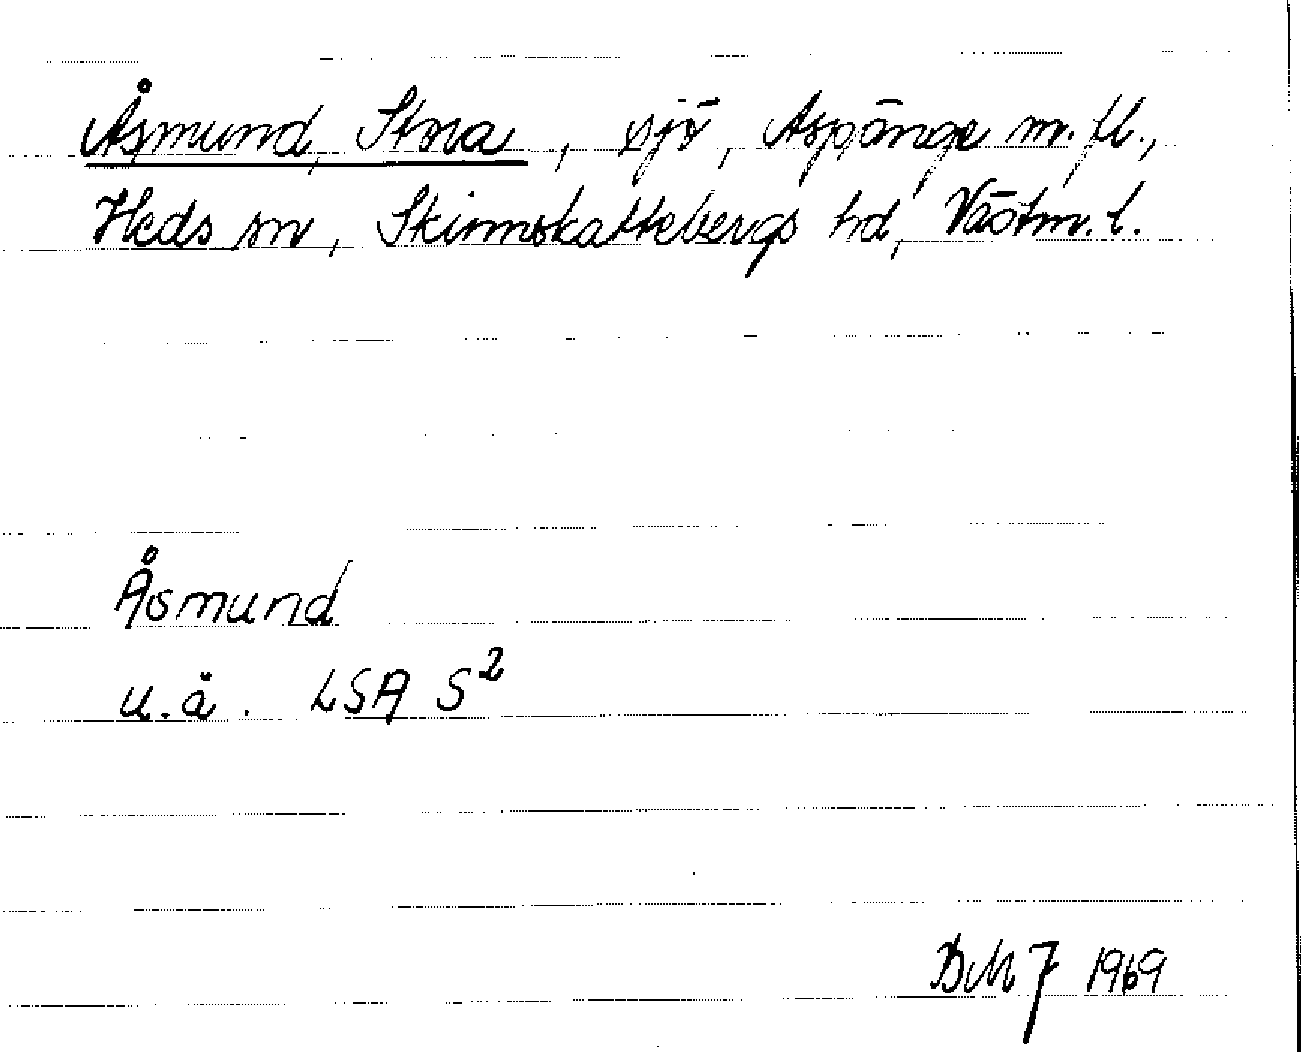 Åsmund, Stora, sjö, Aspänge m.fl.,
Heds sn, Skinnskattebergs hd, Västm. l.
Åsmund
u.ä. LSA S²
1969